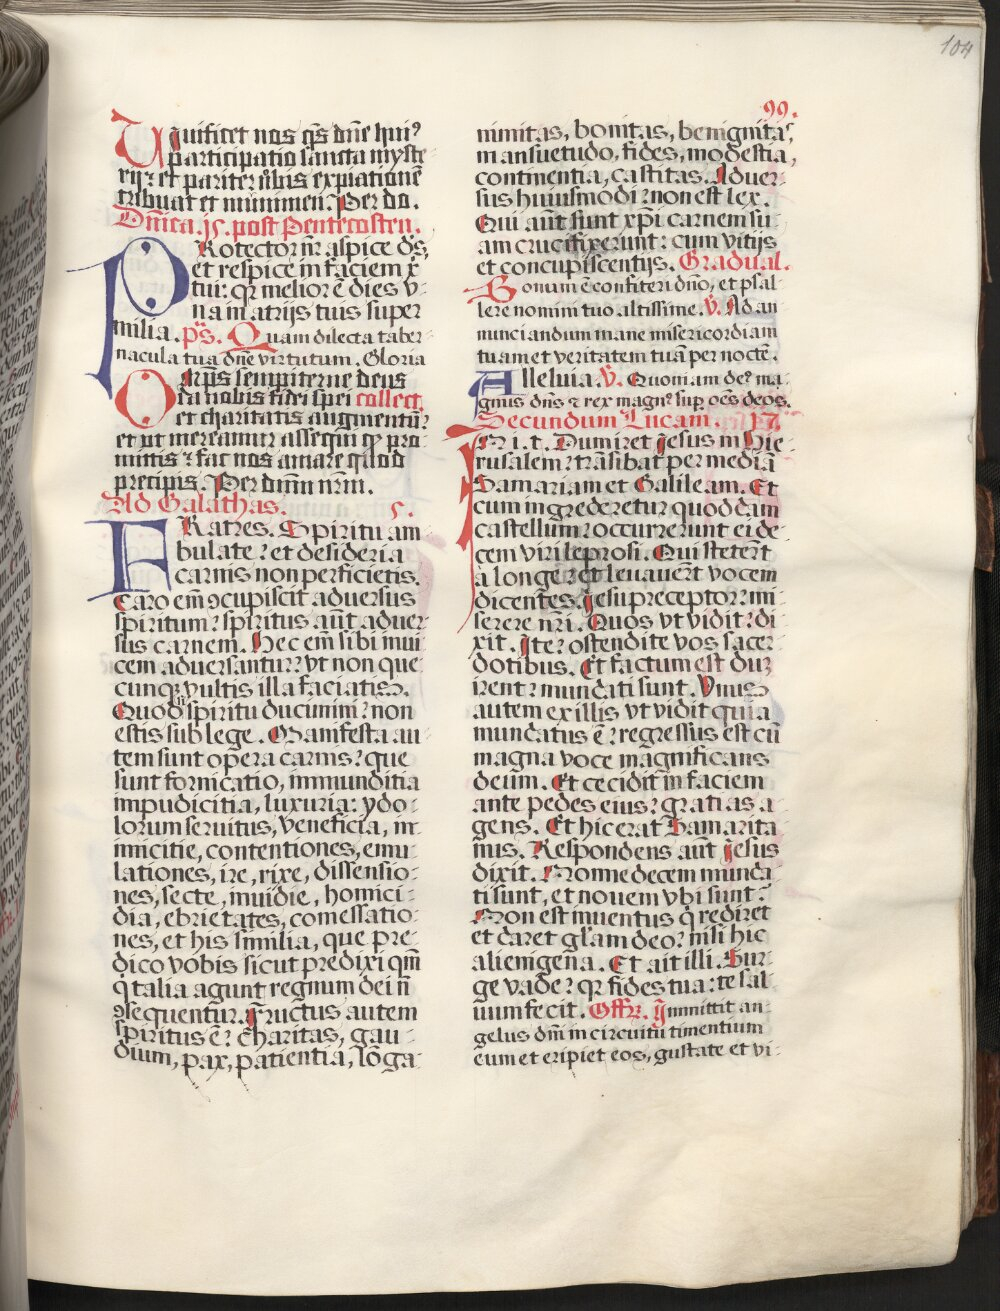 104
99.
Uiuificet nos q̄s dn̄e hui⁹
participatio sancta myste
rij: et pariter nobis expiationē
tribuat et munimen. Per do.
Dn̄ica 15. post Pentecosten.
PRotector nr̄ aspice ds̄,
et respice in faciem x̄
tui: qr meliorē dies v-
na in atrijs tuis super
milia. p̄s. Quam dilecta taber-
nacula tua dn̄e virtutum. Gloria
Omps̄ sempiterne deus
da nobis fidei spei collect.
et charitatis augmentū:
et ut mereamur assequi q̄ pro-
mittis: fac nos amare quod
precipis. Per dnm̄ nr̄m.
Ad Galathas. 5.
FRatres. Spiritu am-
bulate: et desideria
carnis non perficietis.
Caro em̄ ɔcupiscit aduersus
spiritum: spiritus aūt aduer-
sus carnem. Hec em̄ sibi inui-
cem aduersantur: vt non que-
cunq; vultis illa faciatis.
Quod si spiritu ducimini: non
estis sub lege. Manifesta au-
tem sunt opera carnis: que
sunt fornicatio, immunditia
impudicitia, luxuria: ydo-
lorum seruitus, veneficia, in-
imicitie, contentiones, emu-
lationes, ire, rixe, dissensio-
nes, secte, inuidie, homici-
dia, ebrietates, comessatio-
nes, et his similia, que pre-
dico vobis sicut predixi qm̄
q̄ talia agunt regnum dei n̄
ɔsequentur. Fructus autem
spiritus ē: charitas, gau-
dium, pax, patientia, lōga-
nimitas, bonitas, benignitas,
mansuetudo, fides, modestia,
continentia, castitas. Aduer-
sus huiusmodi: non est lex.
Qui aūt sunt xp̄i carnem su-
am crucifixerunt: cum vitijs
et concupiscentijs. Gradual.
Bonum ē confiteri dn̄o, et psal-
lere nomini tuo altissime. v̄. Ad an-
nunciandum mane misericordiam
tuam et veritatem tuā per noctē.
Alleluia. v̄. Quoniam de⁹ ma-
gnus dn̄s & rex magn⁹ sup̄ oēs deos.
Secundum Lucam. 17.
In i. t. Dum iret Jesus in Hie-
rusalem: trāsibat per mediā
Samariam et Galileam. Et
cum ingrederetur quoddam
castellum: occurrerunt ei de-
cem viri leprosi. Qui steterūt
a longe: et leuauerūt vocem
dicentes. Jesu preceptor: mi-
serere nr̄i. Quos vt vidit: di-
xit. Ite: ostendite vos sacer-
dotibus. Et factum est dum
irent: mundati sunt. Unus
autem ex illis vt vidit quia
mundatus ē: regressus est cū
magna voce magnificans
deum. Et cecidit in faciem
ante pedes eius: gratias a-
gens. Et hic erat Samarita-
nus. Respondens aūt Jesus
dixit. Nonne decem munda-
ti sunt, et nouem vbi sunt?
Non est inuentus q̄ rediret
et daret gl̄am deo: nisi hic
alienigena. Et ait illi. Sur-
ge vade: qr fides tua: te sal-
uum fecit. Offr. Immittit an-
gelus dn̄i in circuitu timentium
eum et eripiet eos, gustate et vi-